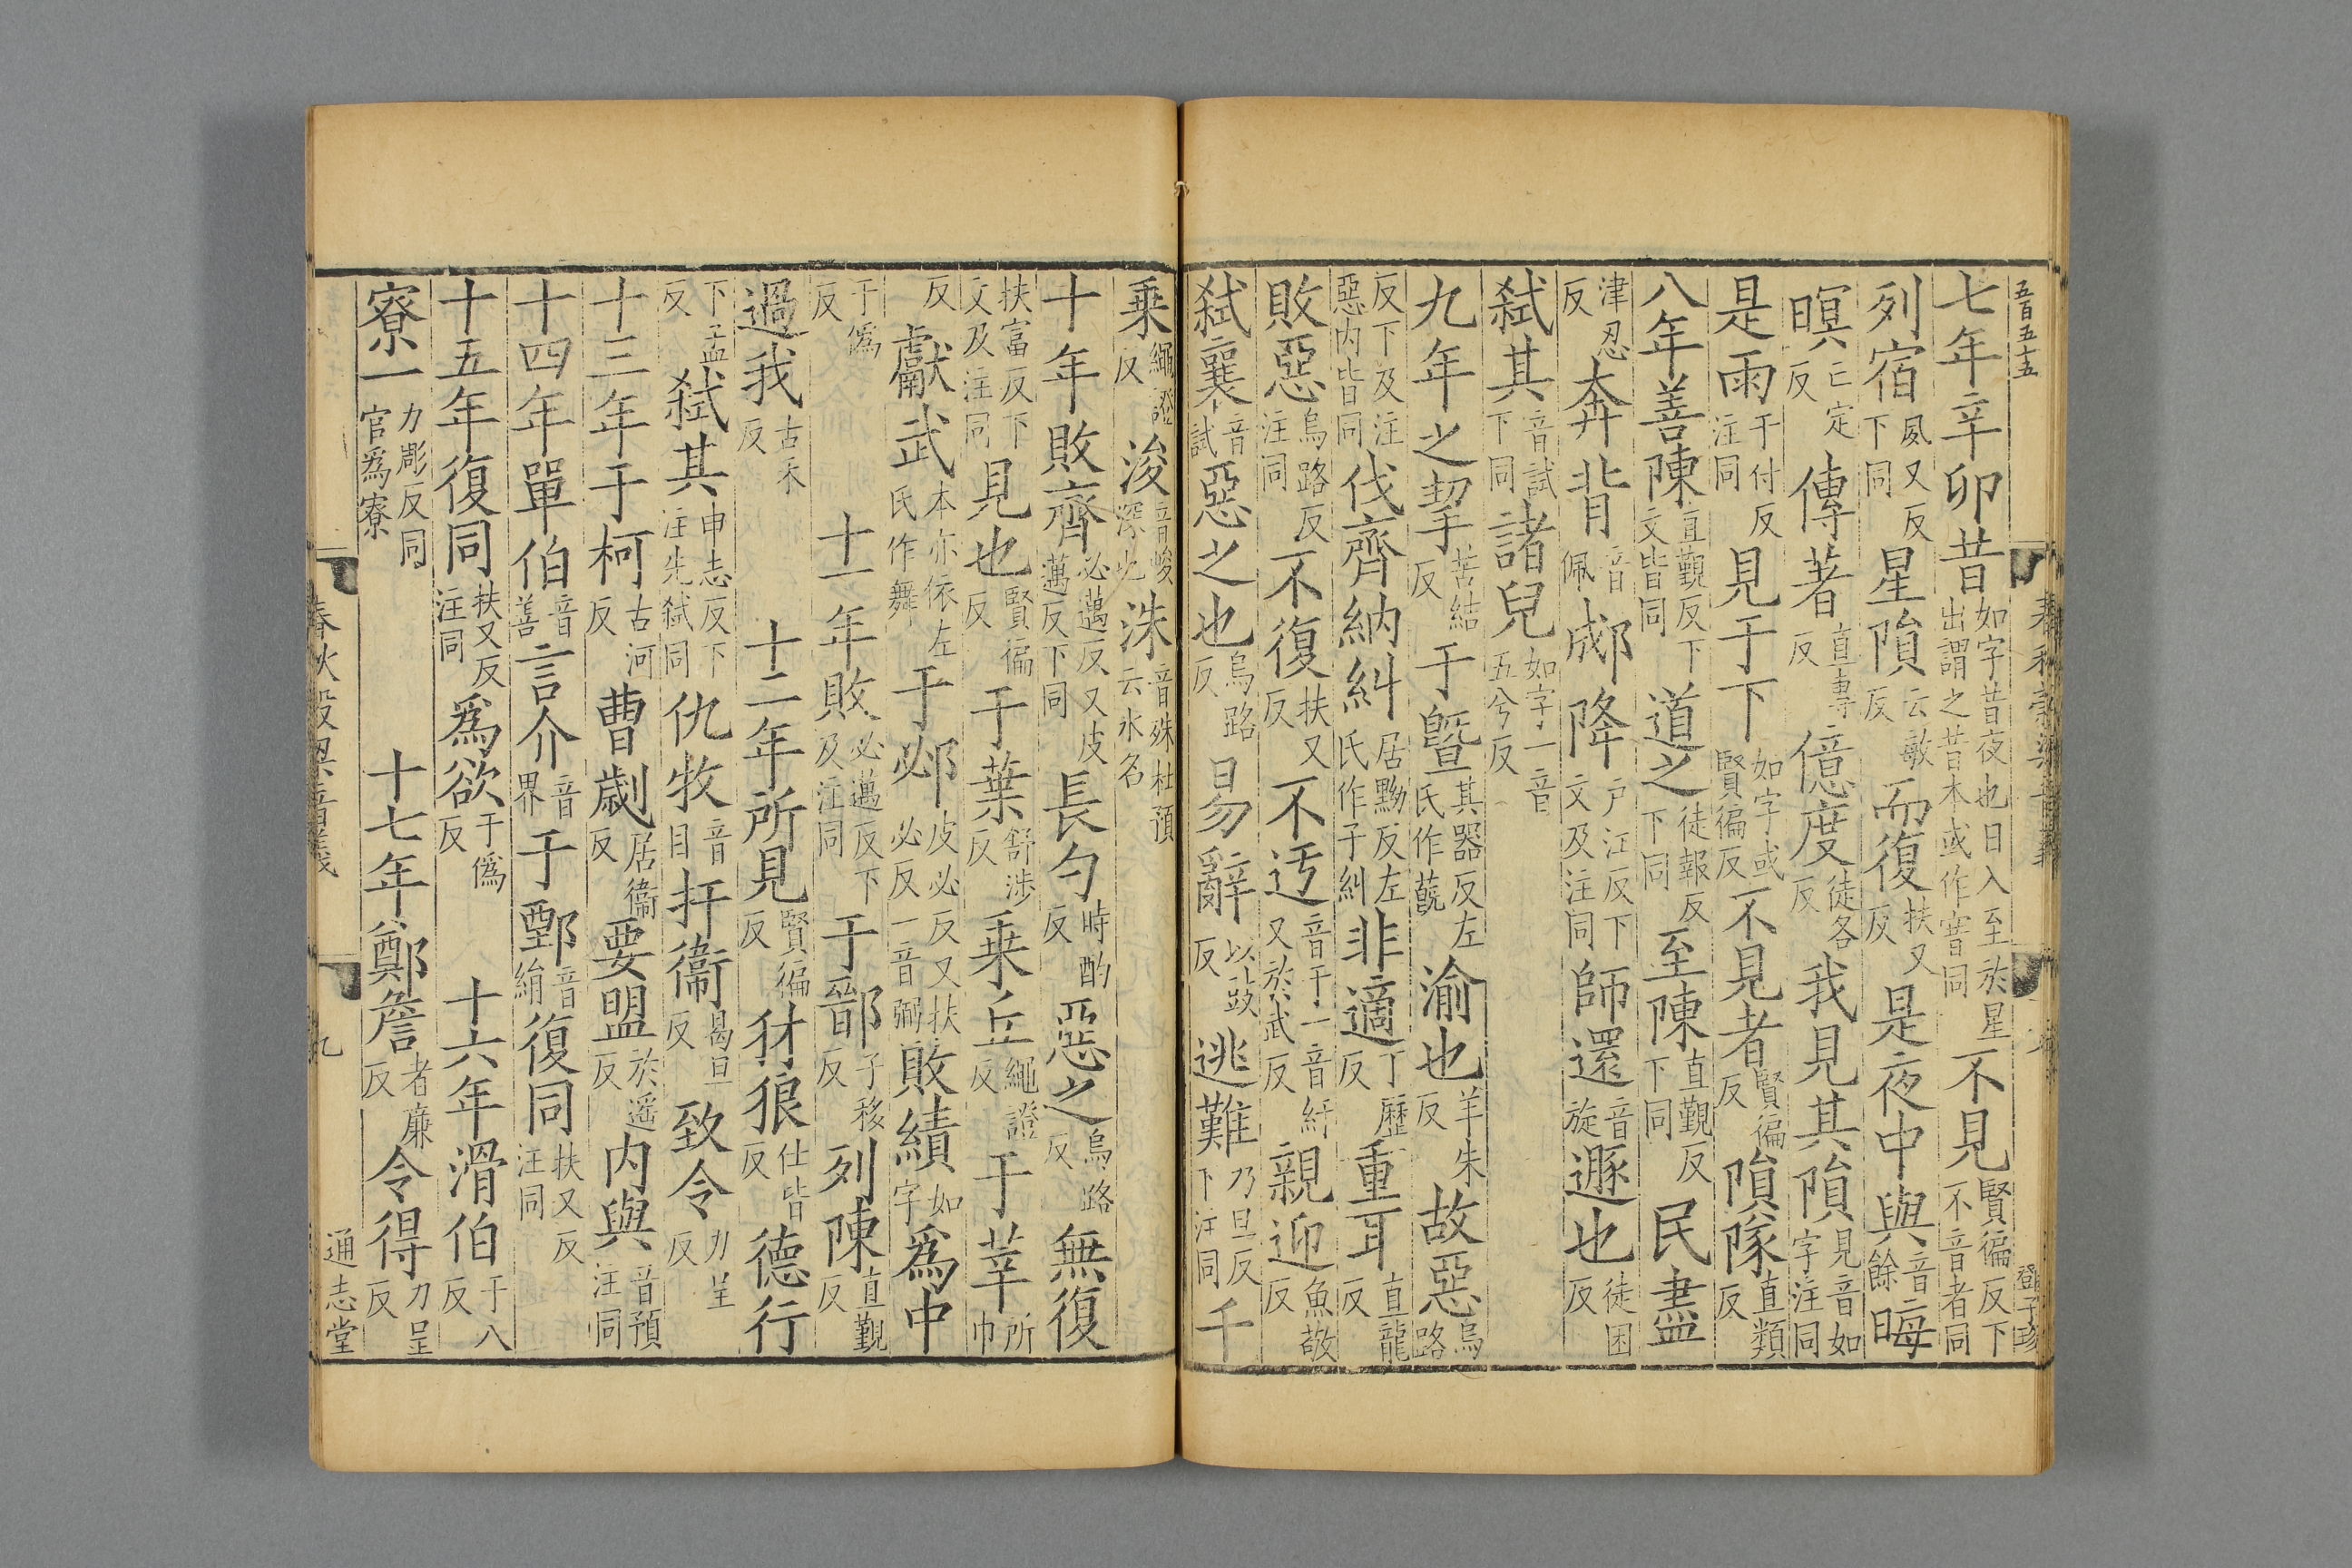 五百五十五
七年辛卯昔如字昔夜也日入至於星出謂之昔本或作䆿同不見賢徧反下不音者同
列宿夙又反下同星隕云敏反而復扶又反是夜中與音餘晦
暝亡定反傳著直專反億度徒各反我見其隕見音如字注同
是雨于付反注同見于下如字或賢徧反不見者賢徧反隕隊直類反
八年善陳直覲反下文皆同道之徒報反下同至陳直覲反下同民盡
津忍反奔背音佩郕降戶江反下文及注同師還音旋遯也徒困反
弒其音試下同諸兒如字一音五兮反
九年之挈苦結反于暨其器反左氏作蔇渝也羊朱反故惡烏路
反下及注惡内皆同伐齊納糾居黝反左氏作子糾非適丁歷反重耳直龍反
敗惡烏路反注同不復扶又反不迃音于一音紆又於武反親迎魚敬反
弒襄音試惡之也烏路反昜辭以豉反逃難乃旦反下注同千
乗繩證反浚音峻深也洙音殊杜預云水名
十年敗齊必邁反又皮邁反下同長勺時酌反惡之烏路反無復
扶富反下文及注同見也賢徧反于葉舒涉反乗丘繩證反于莘所巾
反獻武本亦依左氏作舞于邲皮必反又扶必反一音弼敗績如字爲中
于僞反十一年敗必邁反下及注同于鄑子移反列陳直覲反
過我古禾反十二年所見賢徧反犲狼仕皆反德行
下孟反弒其申志反下注先弒同仇牧音目扞衞曷旦反致令力呈反
十三年于柯古河反曹劌居衞反要盟於遥反内與音預注同
十四年單伯音善言介音界于鄄音絹復同扶又反注同
十五年復同扶又反注同爲欲于僞反十六年滑伯于八反
寮一力彫反同官爲寮十七年鄭詹者廉反令得力呈反
春秋穀梁音義
九
通志堂